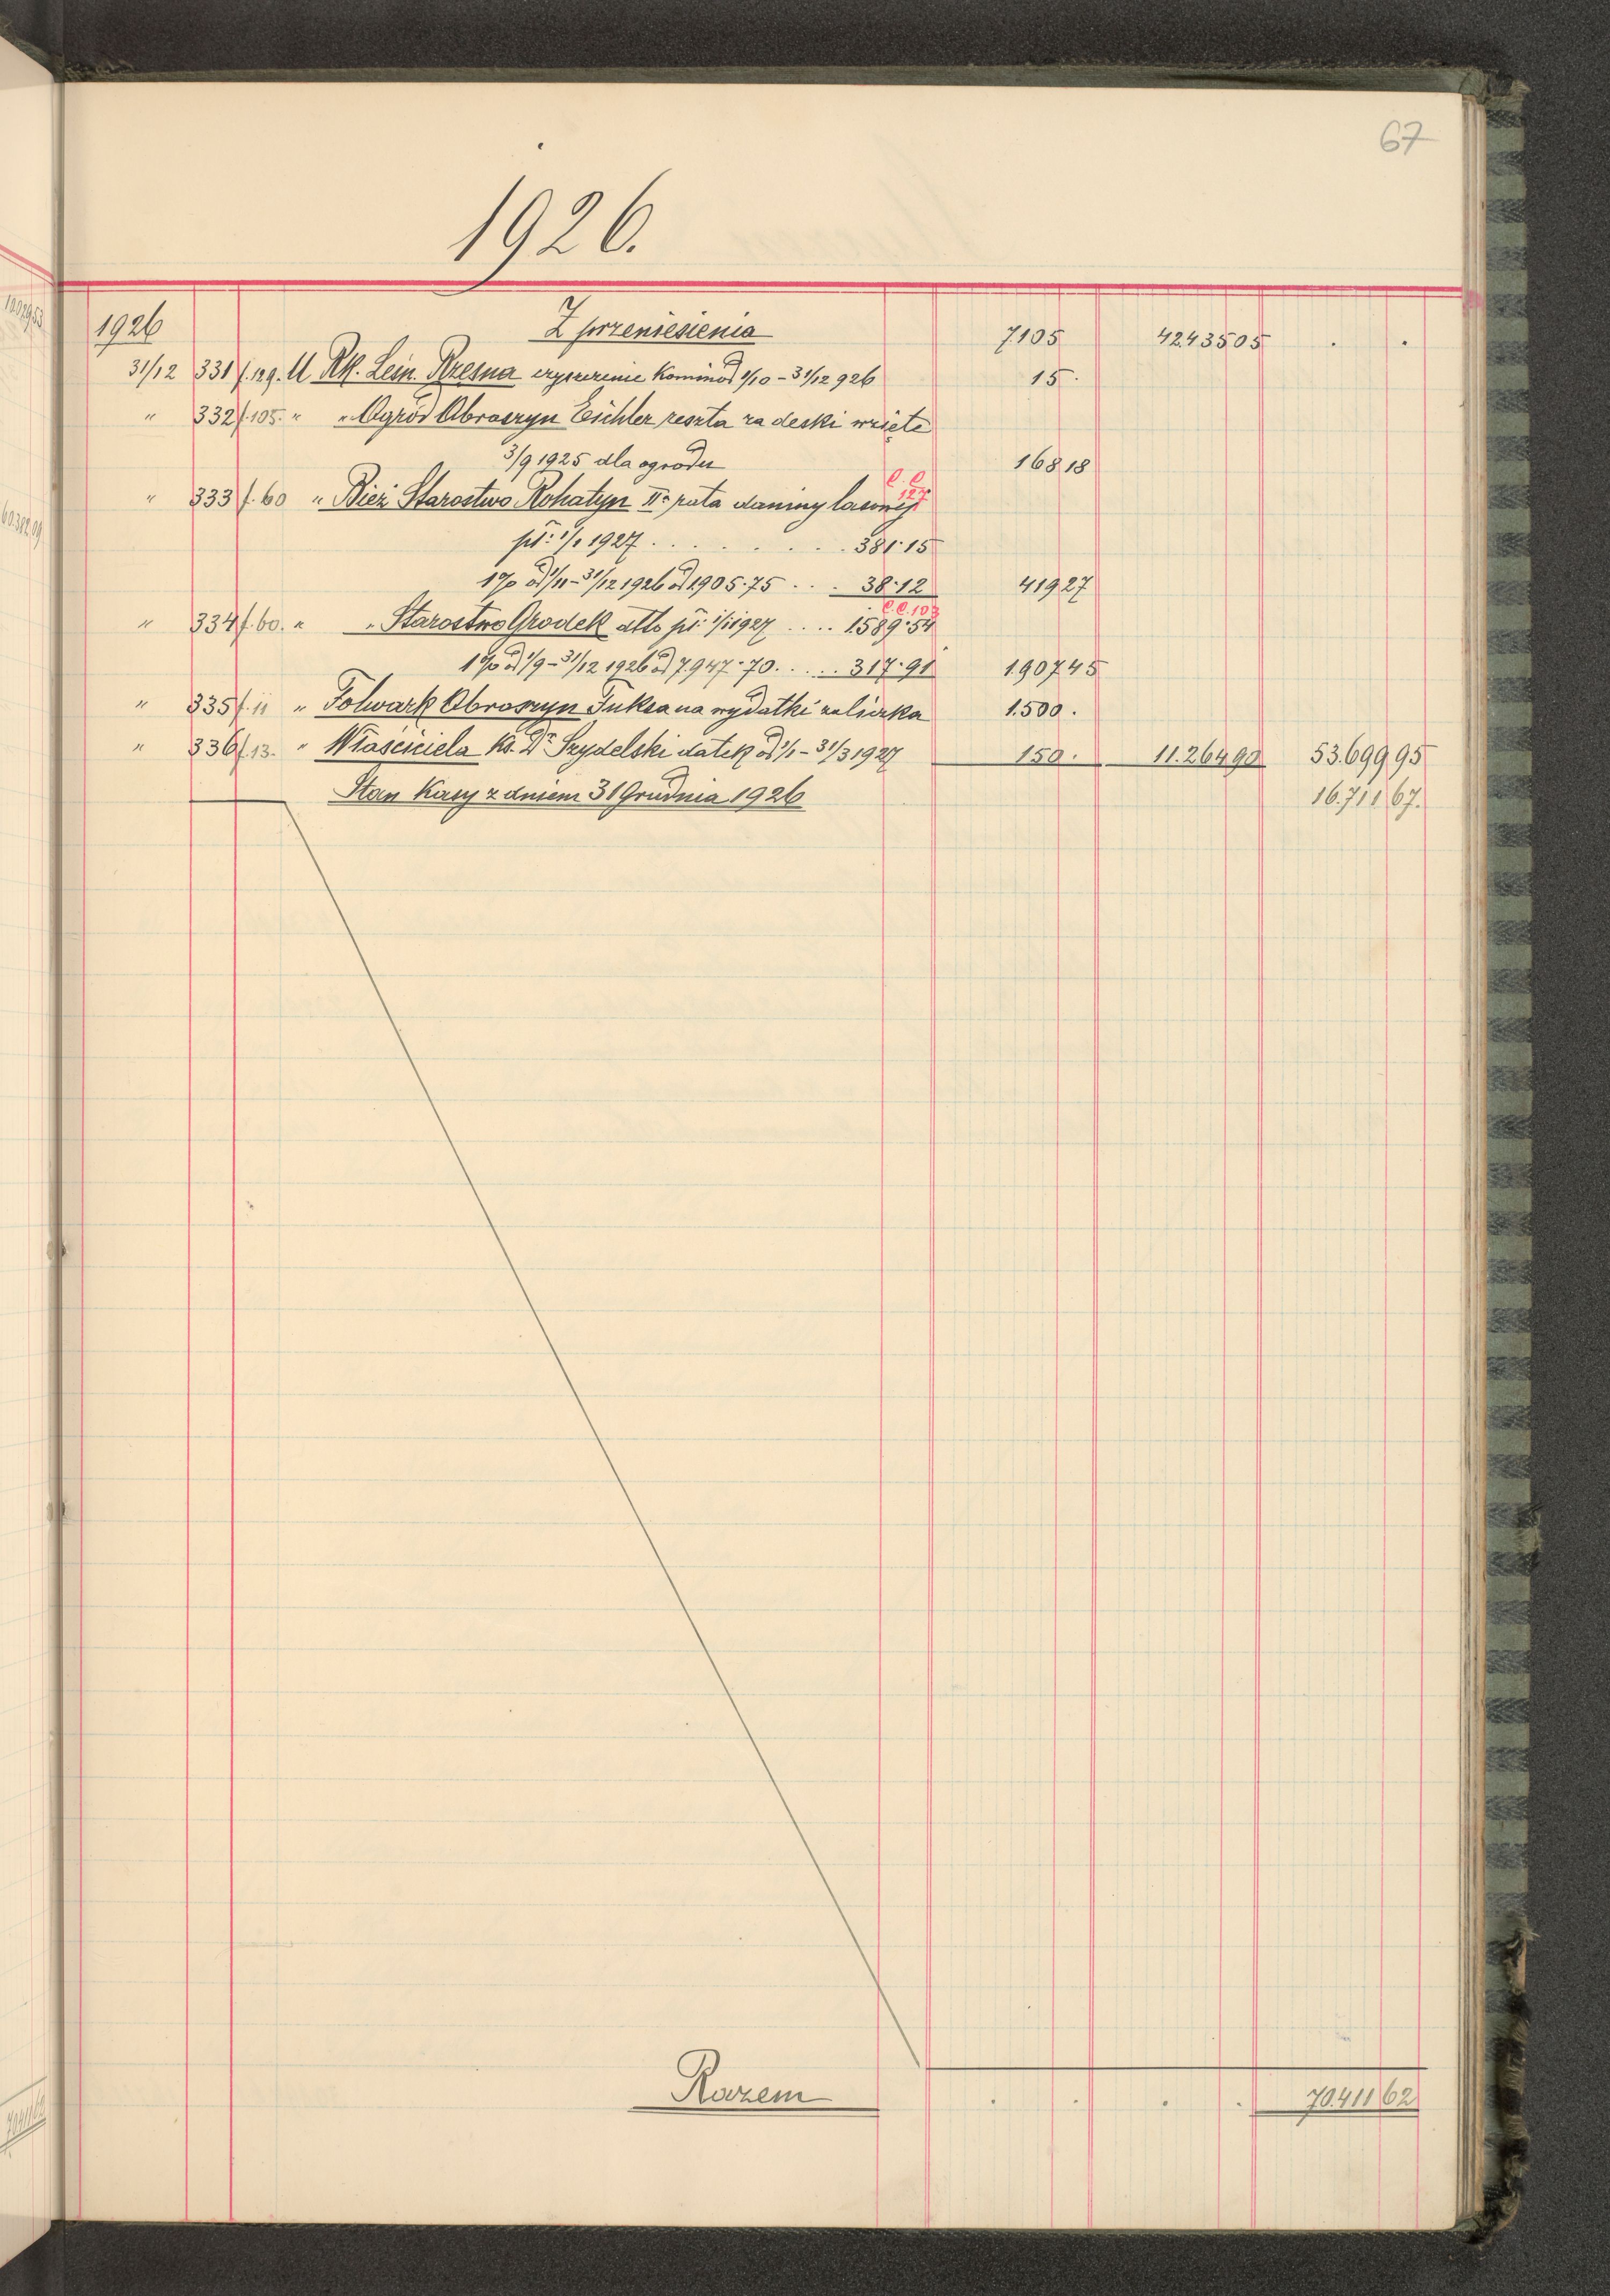 67
1926.
1926 Z przeniesienia 7105 42.435 05 . .
31/12 331 f. 129. U Rk. Leśn. Rzesna czyszczenie komin od 1/10 - 31/12 926 15 .
" 332 f. 105. " " Ogród Obroszyn Eichler reszta za deski wzięte
3/9 1925 dla ogrodu 168 18
" 333 f. 60 " Bież Starostwo Rohatyn IIa rata daniny lasowej C. C. 127
pł: 1/1 1927 . . . . . . . 381·15
1% od 1/11 - 31/12 1926 od 1905·75 . . . 38·12 419 27
" 334 f. 60. " " Starostwo Gródek dtto pł: 1/1 1927 . . . . 1.589·54 C.C. 103
1% od 1/9 - 31/12 1926 od 7.947·70 . . . . . 317·91 1.907 45
" 335 f. 11 " Folwark Obroszyn Fuksa na wydatki zaliczka 1.500 .
" 336 f. 13. " Właściciela Ks. Dr Szydelski datek od 1/1 - 31/3 1927 150 . 11.264 90 53.699 95
Stan Kasy z dniem 31 Grudnia 1926 16.711 67.
Razem . . . . 70.411 62